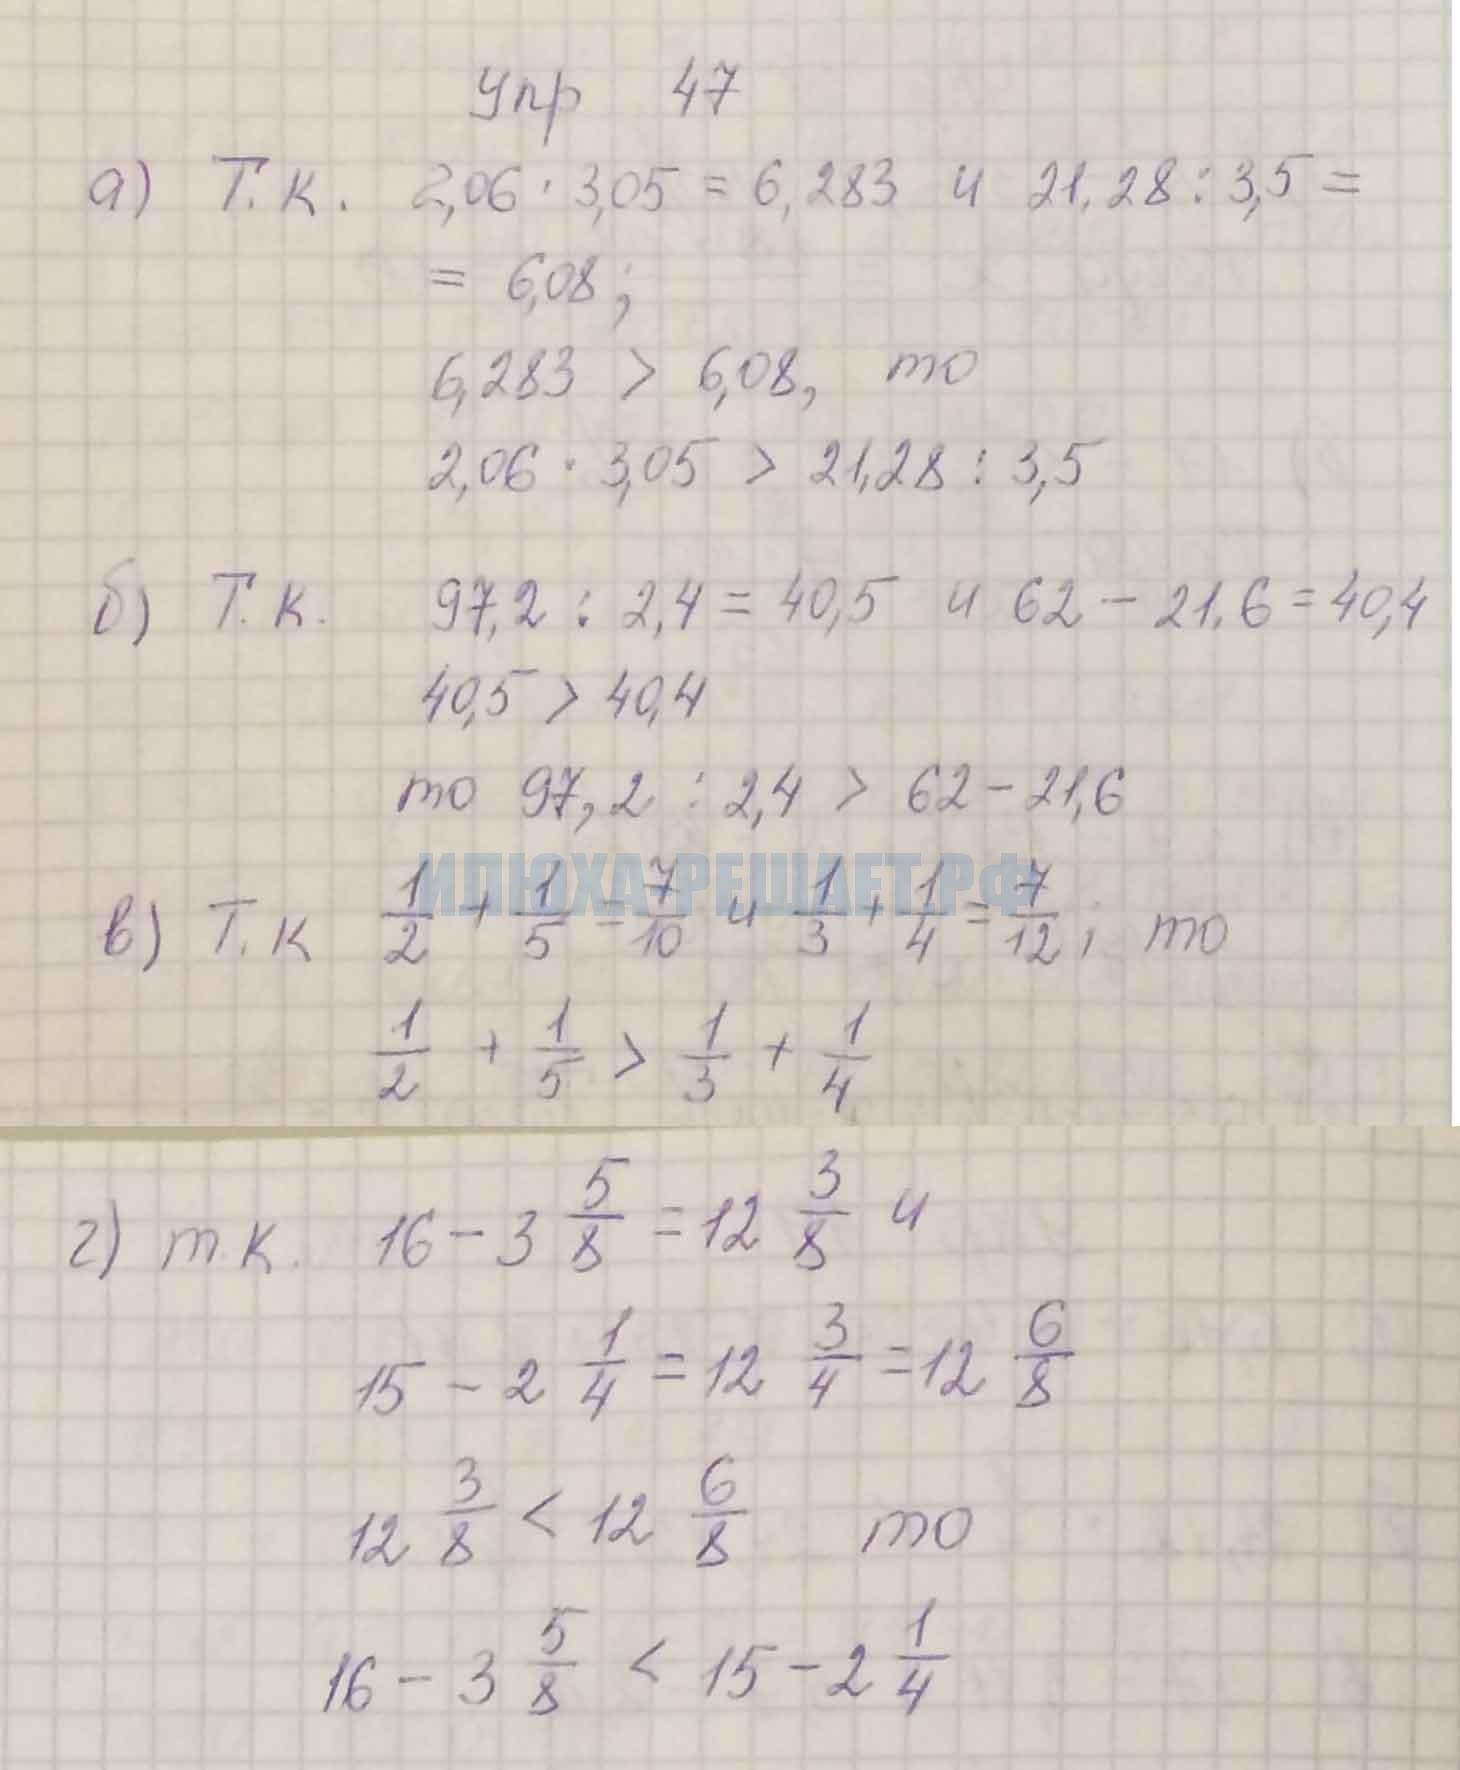 Упр 47
а) Т.к. 2,06 · 3,05 = 6,283 и 21,28 : 3,5 =
= 6,08;
6,283 > 6,08, то
2,06 · 3,05 > 21,28 : 3,5
б) Т.к. 97,2 : 2,4 = 40,5 и 62 - 21,6 = 40,4
40,5 > 40,4
то 97,2 : 2,4 > 62 - 21,6
ИЛЮХА-РЕШАЕТ.РФ
в) Т.к 1/2 + 1/5 = 7/10 и 1/3 + 1/4 = 7/12; то
1/2 + 1/5 > 1/3 + 1/4
г) т.к. 16 - 3 5/8 = 12 3/8 и
15 - 2 1/4 = 12 3/4 = 12 6/8
12 3/8 < 12 6/8 то
16 - 3 5/8 < 15 - 2 1/4